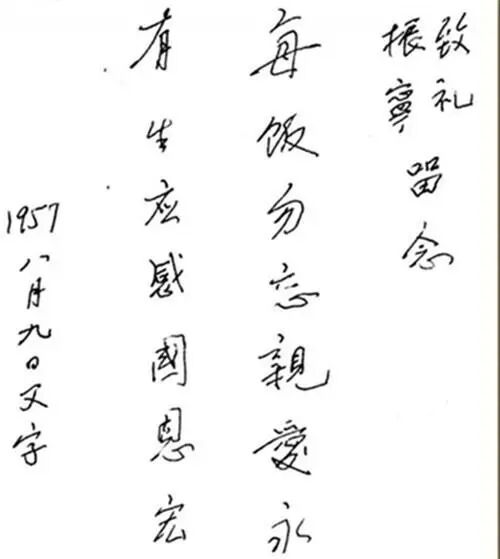 致礼
振寧 留念
每飯勿忘親愛永
有生应感國恩宏
1957八月九日父字